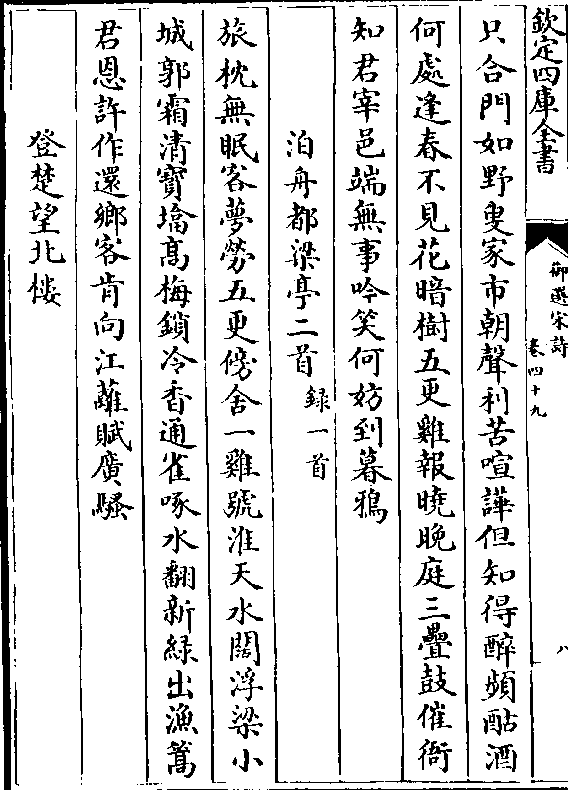 欽定四庫全書
御選宋詩
卷四十九
八
只合門如野叟家市朝聲利苦喧譁但知得醉頻酤酒
何處逢春不見花暗樹五更雞報曉晚庭三疊鼓催衙
知君宰邑端無事吟笑何妨到暮鴉
泊舟都梁亭二首 録一首
旅枕無眠客夢勞五更傍舍一雞號淮天水闊浮梁小
城郭霜清寶墖高梅鎖冷香通雀啄水翻新緑出漁篙
君恩許作還鄉客肯向江蘺賦廣騷
登楚望北楼